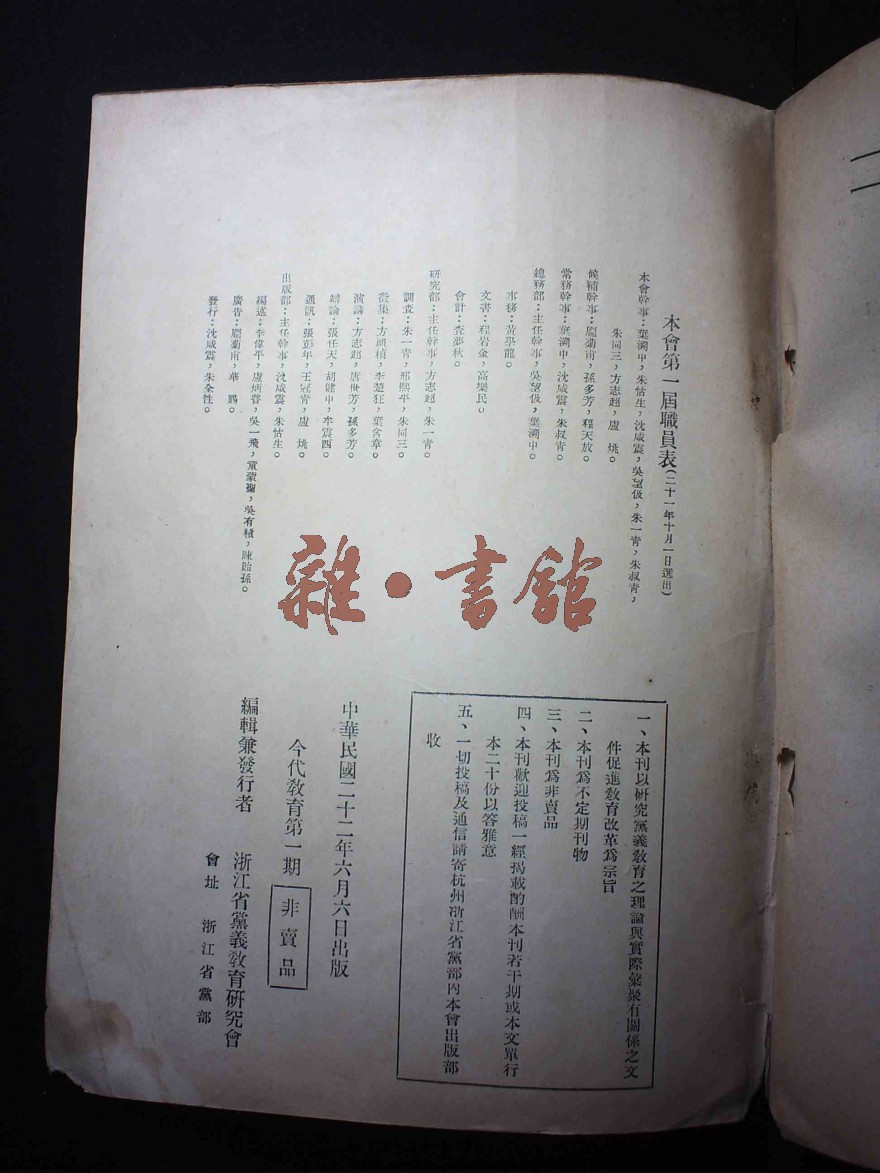 本會第一屆職員表(二十一年十月一日選出)
本會幹事：葉溯中，朱怙生，沈咸震，吳望伋，朱一青，朱叔青，
朱同三，方志超，盧　姚。
候補幹事：龐菊甫，孫多芳，程天放。
常務幹事：葉溯中，沈咸震，朱叔青。
總務部：主任幹事，吳望伋，葉溯中。
事務：黃舉龍。
文書：程岩金，高樂民。
會計：查夢秋。
研究部：主任幹事，方志超，朱一青。
調查：朱一青，邢熙平，朱同三。
徵集：方頑楨，李楚狂，葉含章。
演講：方志超，唐世芳，孫多芳。
辯論：張任天，胡健中，李震西。
通訊：張彭年，王冠青，盧　姚。
出版部：主任幹事，沈咸震，朱怙生。
編述：李偉平，盧炳普，吳一飛，童蒙彌，吳有積，陳貽孫。
廣告：龐菊甫，華　鵬。
發行：沈咸震，朱全性。
雜·書館
一、本刊以研究黨義教育之理論與實際彙聚有關係之文
件促進教育改革爲宗旨
二、本刊爲不定期刊物
三、本刊爲非賣品
四、本刊歡迎投稿一經揭載酌酬本刊若干期或本文單行
本二十份以答雅意
五、一切投稿及通信請寄杭州浙江省黨部內本會出版部
收
中華民國二十二年六月六日出版
今代教育第一期
非賣品
編輯兼發行者
浙江省黨義教育研究會
會址　浙江省黨部